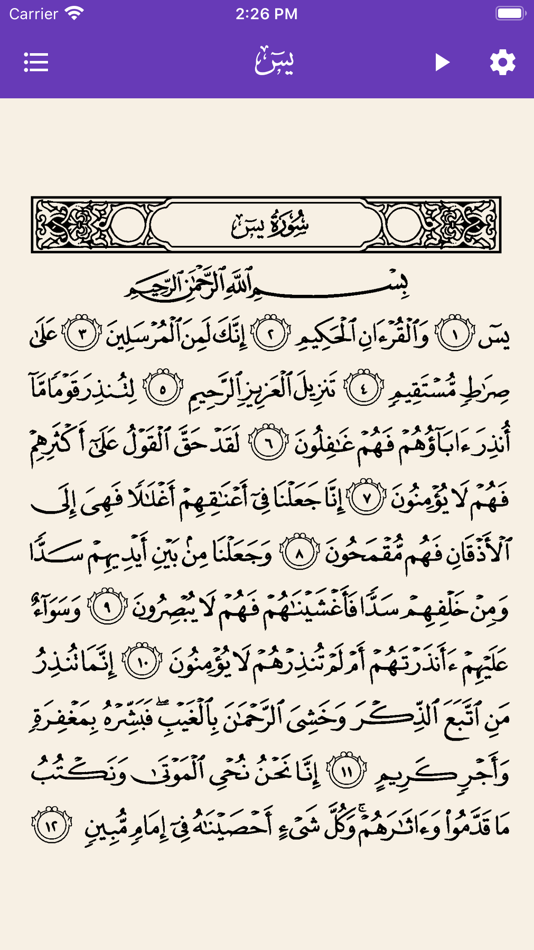 Carrier 2:26 PM
يسٓ
سُورَةُ يسٓ
بِسۡمِ ٱللَّهِ ٱلرَّحۡمَٰنِ ٱلرَّحِيمِ
يسٓ ١ وَٱلۡقُرۡءَانِ ٱلۡحَكِيمِ ٢ إِنَّكَ لَمِنَ ٱلۡمُرۡسَلِينَ ٣ عَلَىٰ
صِرَٰطٖ مُّسۡتَقِيمٖ ٤ تَنزِيلَ ٱلۡعَزِيزِ ٱلرَّحِيمِ ٥ لِتُنذِرَ قَوۡمٗا مَّآ
أُنذِرَ ءَابَآؤُهُمۡ فَهُمۡ غَٰفِلُونَ ٦ لَقَدۡ حَقَّ ٱلۡقَوۡلُ عَلَىٰٓ أَكۡثَرِهِمۡ
فَهُمۡ لَا يُؤۡمِنُونَ ٧ إِنَّا جَعَلۡنَا فِيٓ أَعۡنَٰقِهِمۡ أَغۡلَٰلٗا فَهِيَ إِلَى
ٱلۡأَذۡقَانِ فَهُم مُّقۡمَحُونَ ٨ وَجَعَلۡنَا مِنۢ بَيۡنِ أَيۡدِيهِمۡ سَدّٗا
وَمِنۡ خَلۡفِهِمۡ سَدّٗا فَأَغۡشَيۡنَٰهُمۡ فَهُمۡ لَا يُبۡصِرُونَ ٩ وَسَوَآءٌ
عَلَيۡهِمۡ ءَأَنذَرۡتَهُمۡ أَمۡ لَمۡ تُنذِرۡهُمۡ لَا يُؤۡمِنُونَ ١٠ إِنَّمَا تُنذِرُ
مَنِ ٱتَّبَعَ ٱلذِّكۡرَ وَخَشِيَ ٱلرَّحۡمَٰنَ بِٱلۡغَيۡبِۖ فَبَشِّرۡهُ بِمَغۡفِرَةٖ
وَأَجۡرٖ كَرِيمٍ ١١ إِنَّا نَحۡنُ نُحۡيِ ٱلۡمَوۡتَىٰ وَنَكۡتُبُ
مَا قَدَّمُواْ وَءَاثَٰرَهُمۡۚ وَكُلَّ شَيۡءٍ أَحۡصَيۡنَٰهُ فِيٓ إِمَامٖ مُّبِينٖ ١٢